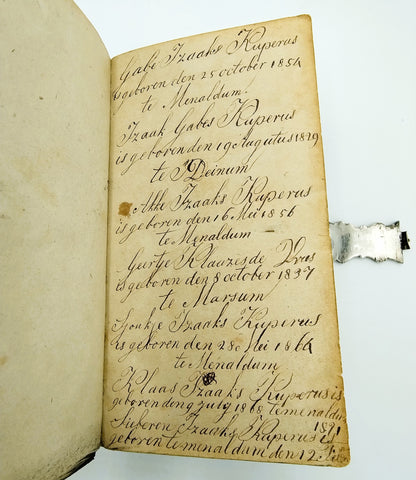 Gabe Izaaks Kuperus
is geboren den 25 october 1854
te Menaldum.
Izaak Gabes Kuperus
is geboren den 19 Augustus 1829
te Deinum
Akke Izaaks Kuperus
is geboren den 16 Mei 1856
te Menaldum
Geertje Klaazis de Vras
is geboren den 8 october 1837
te Marsum
Sjoukje Izaaks Kuperus
is geboren den 28 Mei 1864
te Menaldum
Klaas Izaaks Kuperus is
geboren den 9 July 1868 te menaldum
1871
Suberen Izaaks Kuperus is
geboren te menaldum den 12